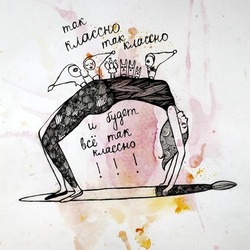 так
классно
так классно
и будет
всё так
классно
!!!